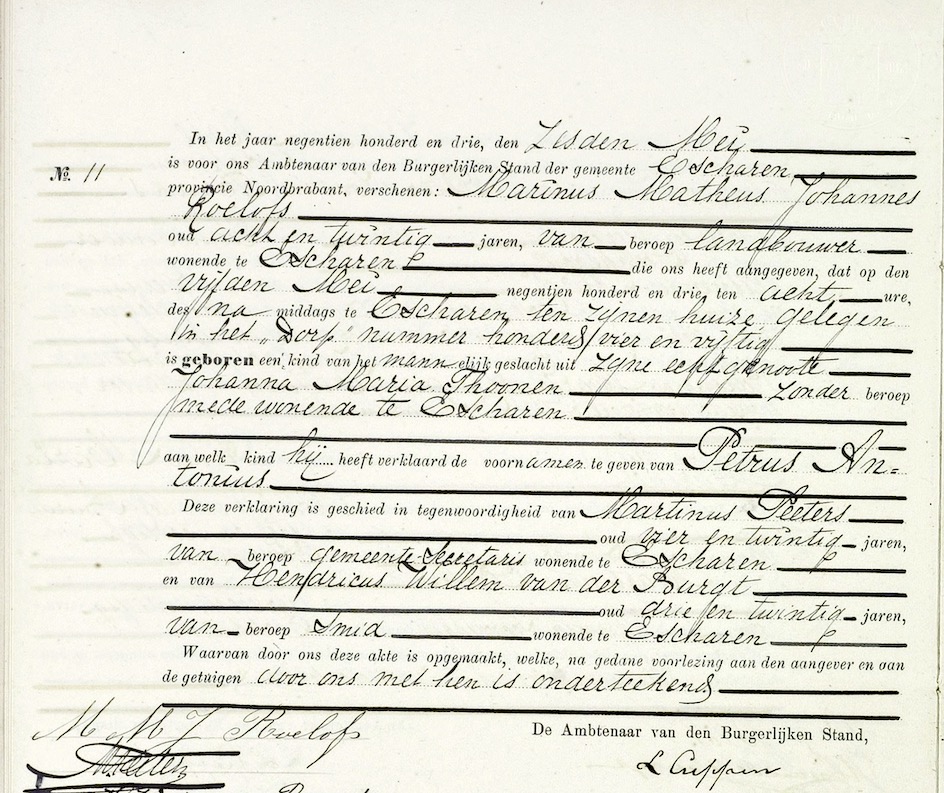 In het jaar negentien honderd en drie, den Zesden Mei
is voor ons Ambtenaar van den Burgerlijken Stand der gemeente Escharen,
№. 11
provincie Noordbrabant, verschenen: Marinus Matheus Johannes
Roelofs
oud acht en twintig jaren, van beroep landbouwer
wonende te Escharen die ons heeft aangegeven, dat op den
vijfden Mei negentien honderd en drie ten acht ure,
des na middags te Escharen ten zijnen huize, gelegen
in het „Dorp" nummer honderd vier en vijftig
is geboren een kind van het mannelijk geslacht uit zijne echtgenoote
Johanna Maria Thoonen zonder beroep
mede wonende te Escharen
aan welk kind hij heeft verklaard de voornamen te geven van Petrus An=
tonius
Deze verklaring is geschied in tegenwoordigheid van Martinus Peeters
oud vier en twintig jaren,
van beroep gemeente-Secretaris wonende te Escharen
en van Hendricus Willem van der Burgt
oud drie en twintig jaren,
van beroep Smid wonende te Escharen
Waarvan door ons deze akte is opgemaakt, welke, na gedane voorlezing aan den aangever en aan
de getuigen door ons met hen is onderteekend
M M J Roelofs
De Ambtenaar van den Burgerlijken Stand,
L Cuppen